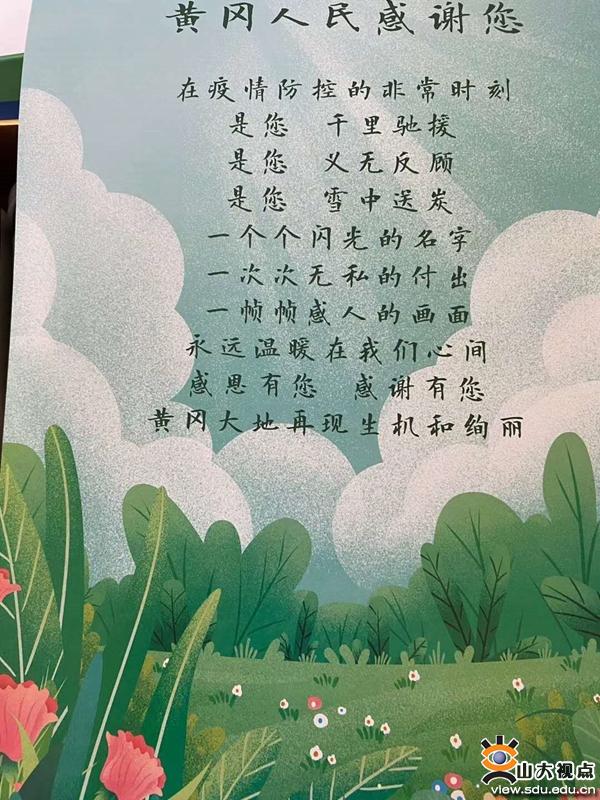 黄冈人民感谢您
在疫情防控的非常时刻
是您 千里驰援
是您 义无反顾
是您 雪中送炭
一个个闪光的名字
一次次无私的付出
一帧帧感人的画面
永远温暖在我们心间
感恩有您 感谢有您
黄冈大地再现生机和绚丽
山大视点
view.sdu.edu.cn